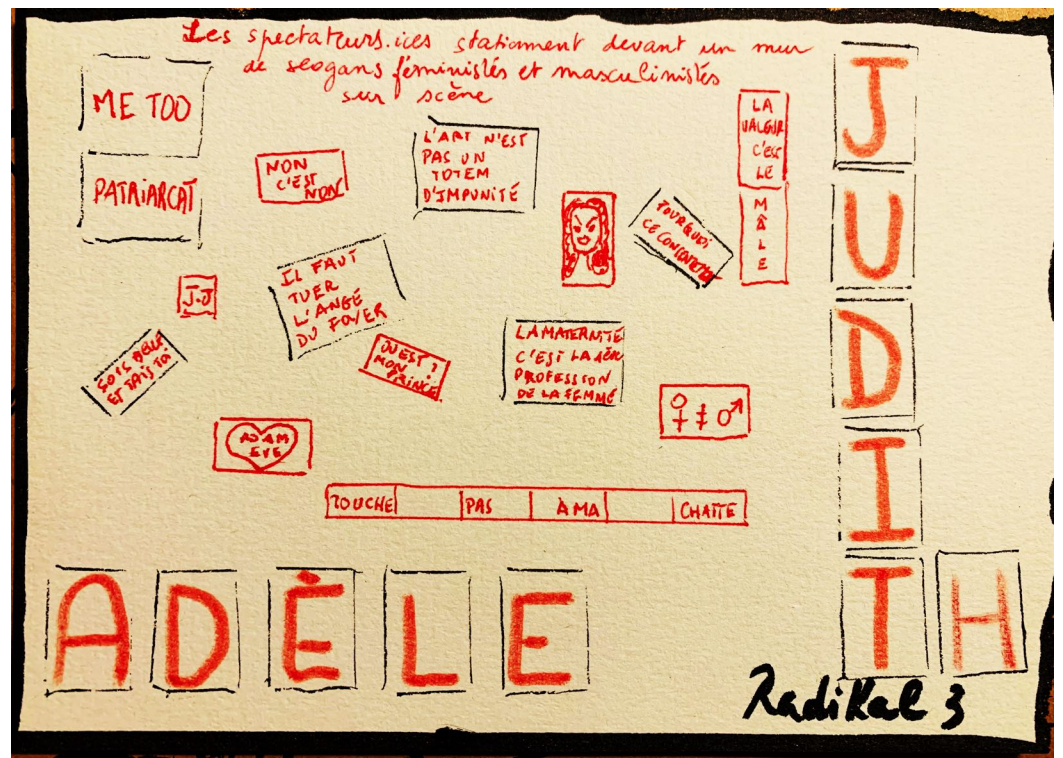 Les spectateurs.ices stationnent devant un mur
de slogans féministes et masculinistes
sur scène
ME TOO
PATRIARCAT
NON
C'EST
NON
L'ART N'EST
PAS UN
TOTEM
D'IMPUNITÉ
POURQUOI
LA
VALEUR
C'EST
LE
M
Â
L
E
J.J
IL FAUT
TUER
L'ANGE
DU FOYER
SOIS BELLE
ET TAIS TOI
OU EST ?
MON
PRINCE
LA MATERNITÉ
C'EST LA 1ÈRE
PROFESSION
DE LA FEMME
♀ ≠ ♂
ADAM
EVE
TOUCHE PAS À MA CHATTE
J
U
D
I
T H
ADÈLE
Radikal 3